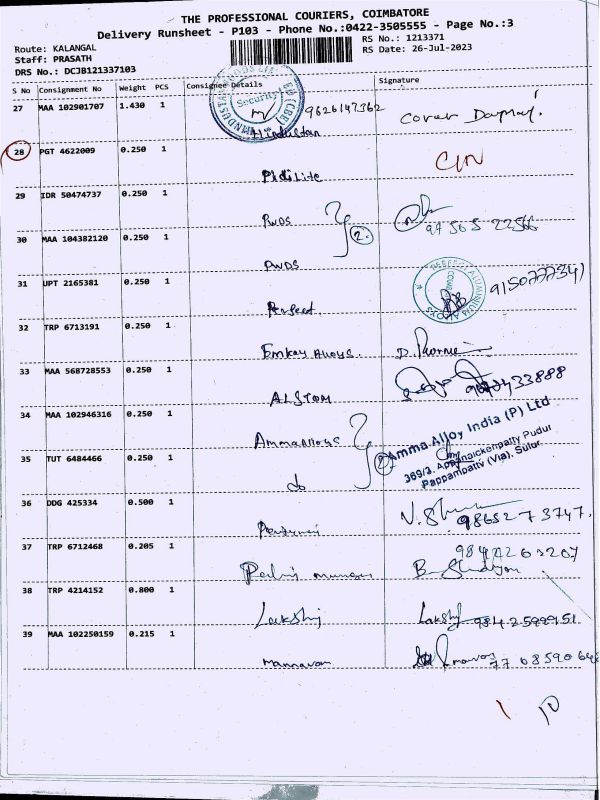 THE PROFESSIONAL COURIERS, COIMBATORE
Delivery Runsheet - P103 - Phone No.:0422-3505555 - Page No.:3
Route: KALANGAL
RS No.: 1213371
Staff: PRASATH
RS Date: 26-Jul-2023
DRS No.: DCJB121337103
S No Consignment No Weight PCS Consignee Details Signature
27 MAA 102901707 1.430 1 Hindustan 9626147362
Security
28 PGT 4622009 0.250 1 Pidilite
29 IDR 50474737 0.250 1 PWDS 2
30 MAA 104382120 0.250 1 PWDS
31 UPT 2165381 0.250 1 Perfect 9150777341
32 TRP 6713191 0.250 1 Emkay Alloys.
33 MAA 568728553 0.250 1 ALSTOM
34 MAA 102946316 0.250 1 Amma Alloys 2
Amma Alloy India (P) Ltd
369/3, Appanaickenpatty Pudur
Pappampatti (Via), Sulur
35 TUT 6484466 0.250 1 do
36 DDG 425334 0.500 1 98652 73747.
37 TRP 6712468 0.205 1
38 TRP 4214152 0.800 1 Lakshmi
39 MAA 102250159 0.215 1 Mannavan
1 10